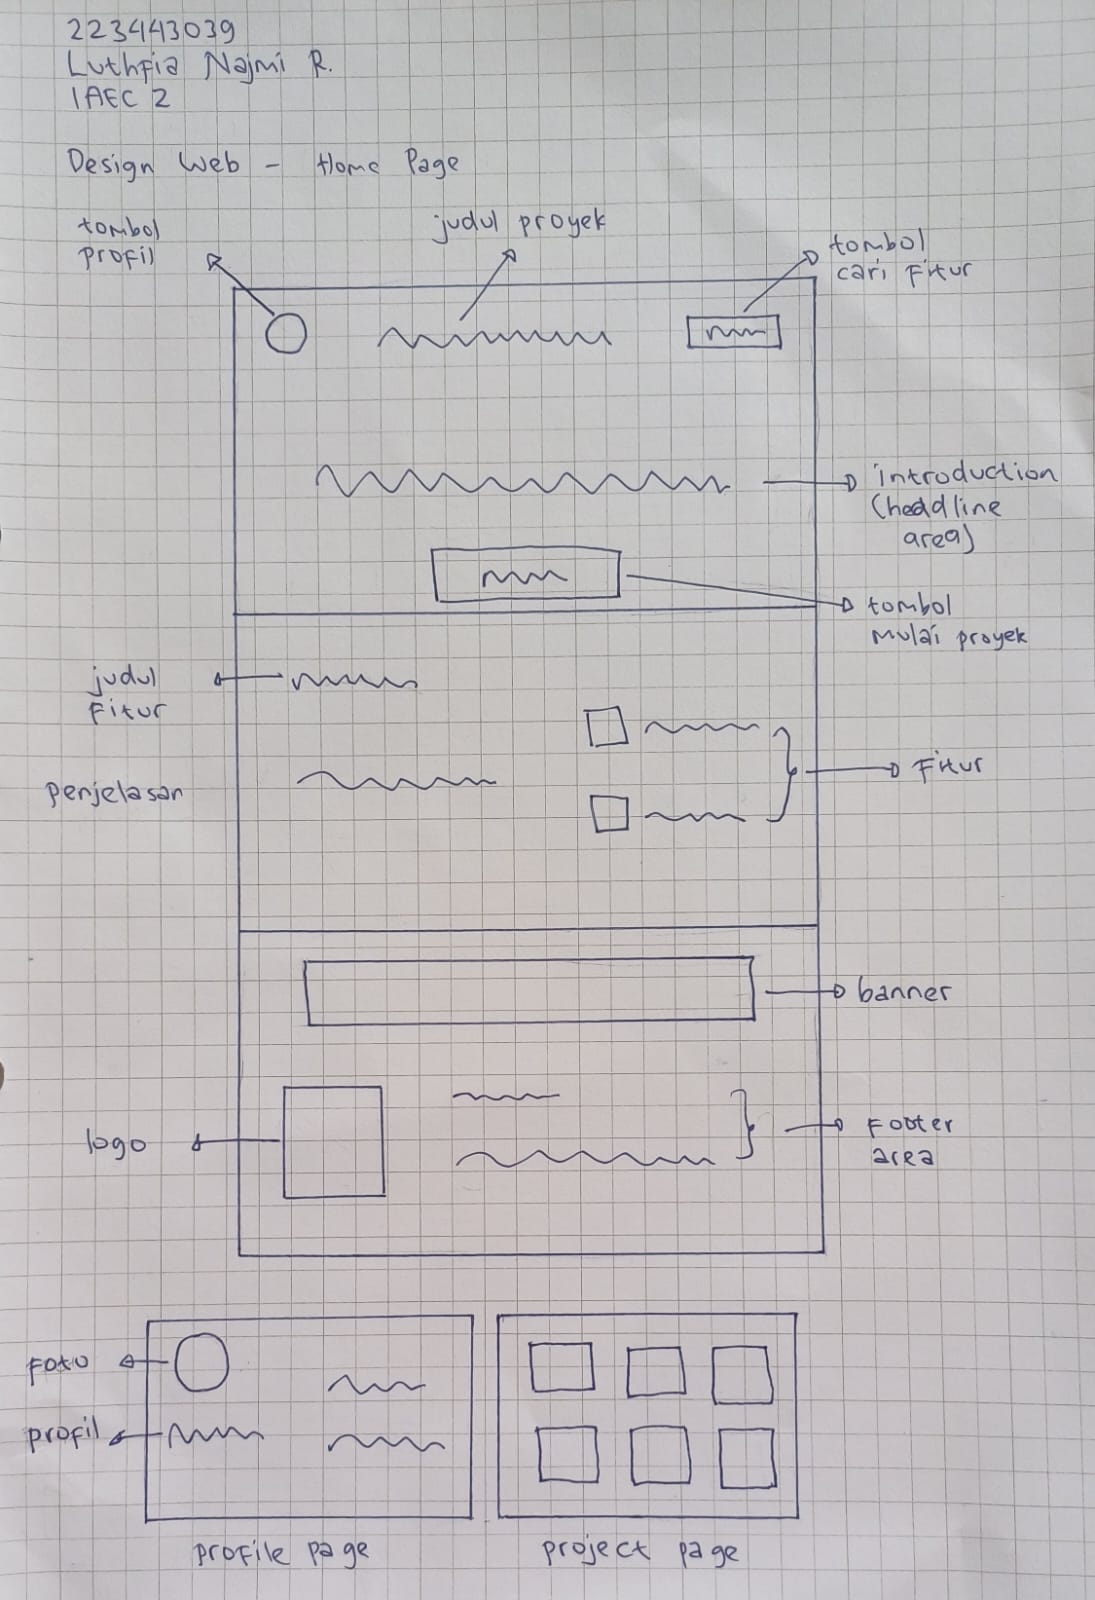 223443039
Luthfia Najmi R.
1AEC 2
Design Web - Home Page
tombol
profil
judul proyek
tombol
cari Fitur
introduction
(headline
area)
tombol
Mulai proyek
judul
Fitur
penjelasan
Fitur
banner
logo
Footer
area
Foto
profil
profile page
project page